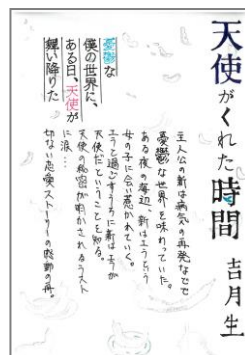 天使がくれた時間
吉月生
憂鬱な
僕の世界に、
ある日、天使が
舞い降りた
主人公の新は病気の再発などで
憂鬱な世界を味わっていた。
ある夜の海辺、新はエラという
女の子に会い惹かれていく。
エラと過ごすうちに新はエラが
天使だということを知る。
天使の秘密が明かされるラスト
に涙…
切ない恋愛ストーリーの感動の一冊。